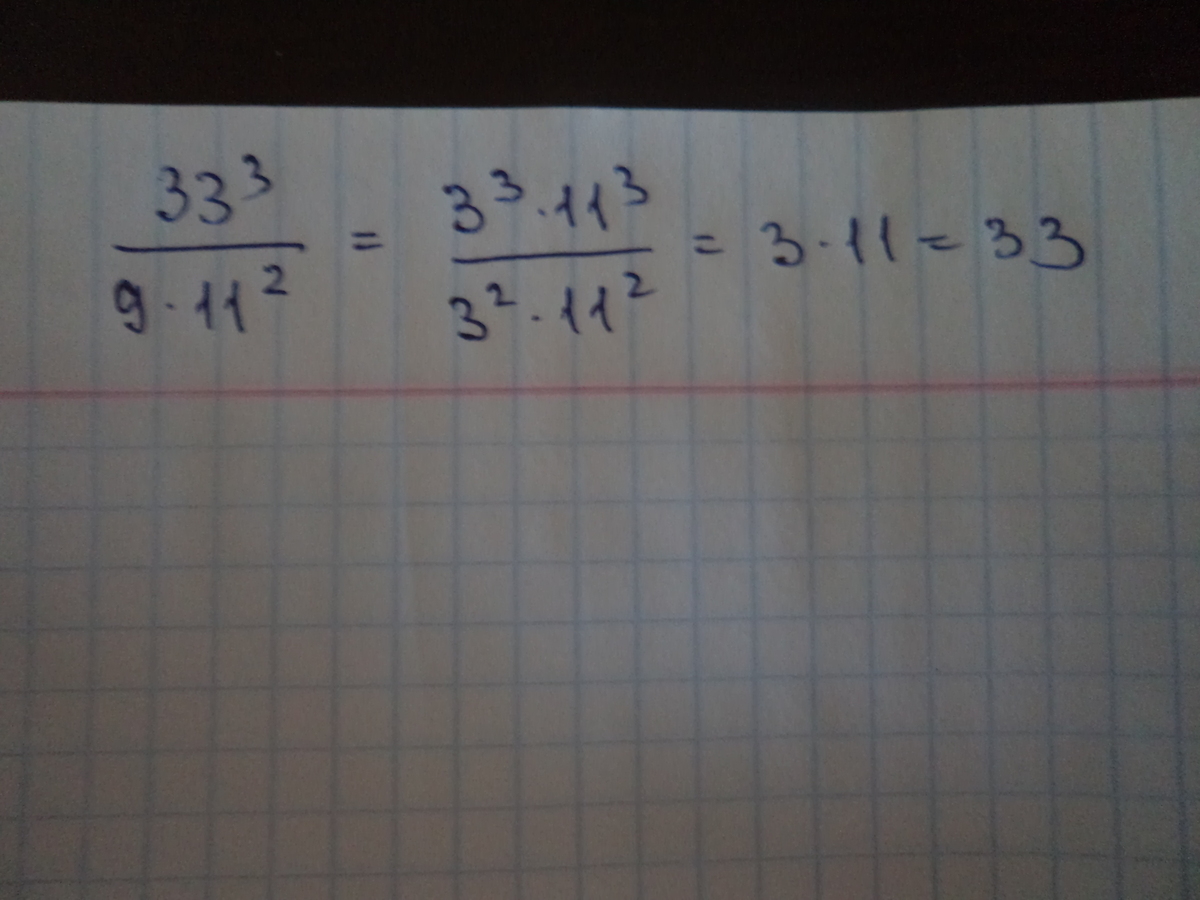 33³ / 9·11² = 3³·11³ / 3²·11² = 3·11 = 33